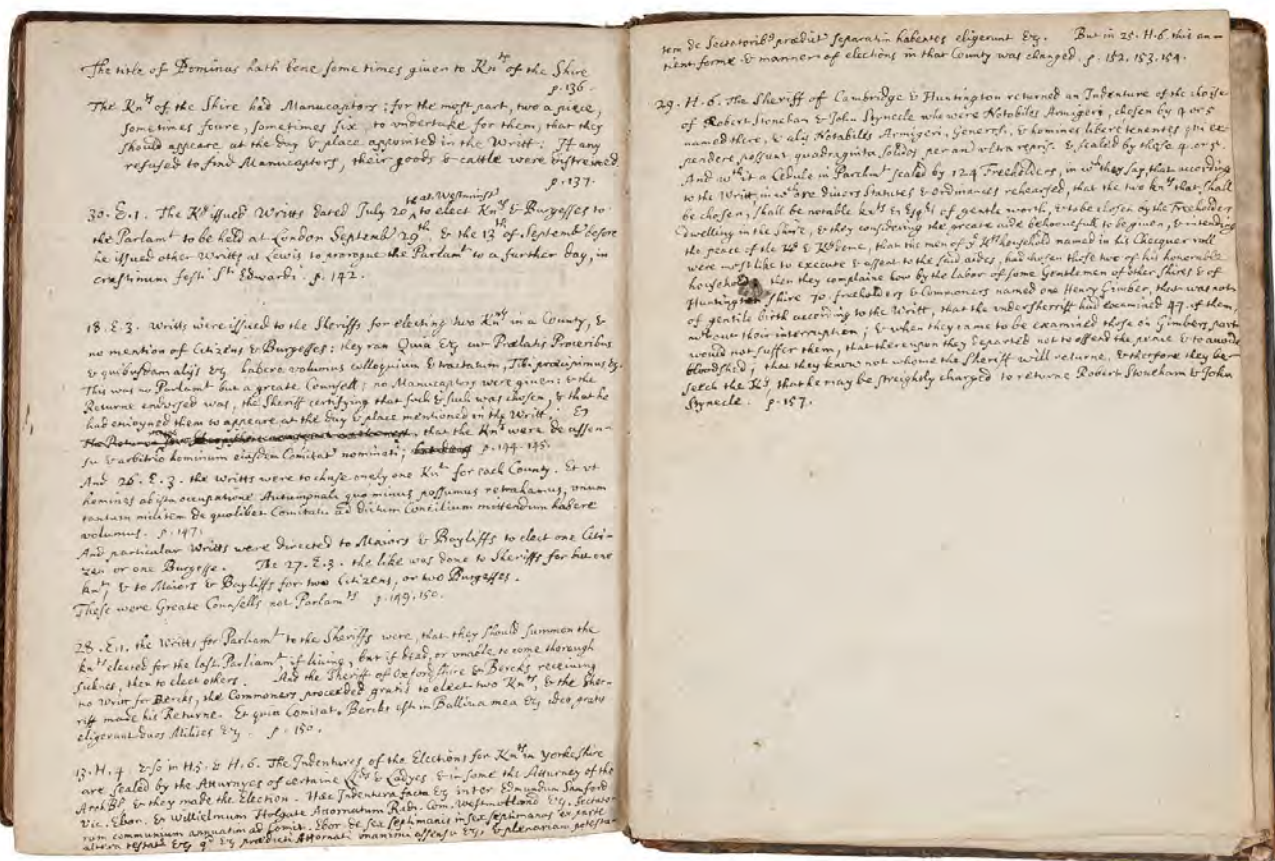 The title of Dominus hath bene some times given to Knts of the Shire
p. 136.
The Knts of the Shire had Manucaptors; for the most part, two a piece,
sometimes foure, sometimes six, to undertake for them, that they
should appeare at the day & place appointed in the Writt: If any
refused to find Manucaptors, their goods & cattle were distreined
p. 137.
30. E. 1. The Kg issued Writts dated July 20 at Westminst to elect Knts & Burgesses to
the Parlamt to be held at London Septemb 29th & the 13th of Septemb before
he issued other Writts at Lewis to prorogue the Parlamt to a further day, in
crastinum festi Sti Edwardi. p. 142.
18. E. 3. Writts were issued to the Sheriffs for electing two Knts in a County, &
no mention of Citizens & Burgesses: they ran Quia &c cum Prælatis Proceribus
& quibusdam alijs &c habere volumus colloquium & tractatum, Tibi præcipimus &c.
This was no Parlamt but a greate Counsell; no Manucaptors were given: & the
Returne endorsed was, the Sheriff certifying that such & such was chosen, & that he
had enioyned them to appeare at the day & place mentioned in the Writt. Et
The Returne that the Knts were de assen-
su & arbitrio hominum eiusdem Comitat nominati; p. 144. 145.
And 26. E. 3. the Writts were to chuse onely one Knt for each County. Et ut
homines ab ista occupatione Autumpnali quo minus possumus retrahamus, unum
tantum militem de quolibet Comitatu ad dictum Concilium mittendum habere
volumus. p. 147.
And particular Writts were directed to Maiors & Bayliffs to elect one Citi-
zen or one Burgesse. The 27. E. 3. the like was done to Sheriffs for but one
knt, & to Maiors & Bayliffs for two Citizens, or two Burgesses.
These were Greate Counsells not Parlamts p. 149. 150.
28. E. 1. the Writts for Parliamt to the Sheriffs were, that they should summon the
knts elected for the last Parliamt, if living, but if dead, or unable to come thorough
sicknes, then to elect others. And the Sheriff of Oxfordshire & Bercks receiving
no Writt for Bercks, the Commoners proceeded gratis to elect two Knts, & the Sher-
riff made his Returne. Et quia Comitat. Bercks est in Balliva mea &c ideo gratis
eligerunt duos Milites &c. p. 150.
13. H. 4. & so in H. 5. & H. 6. The Indentures of the Elections for Knts in Yorkeshire
are sealed by the Atturnyes of certaine Lds & Ladyes & in some the Atturney of the
ArchBp & they made the Election. Hæc Indentura facta &c inter Edmundum Sanford
Vic. Ebor. & Willielmum Holgate Attornatum Radi. Com. Westmorland &c. Sectato-
rum communium annuatim ad Comit. Ebor. de sex septimanis in sex septimanas ex parte
altera testatr &c qd &c prædicti Attornati unanimi assensu &c, & plenariam potesta-
tem de Sectatoribs prædicts separatim habentes eligerunt &c. But in 25. H. 6. this an-
tient forme & manner of elections in that County was changed. p. 152. 153. 154.
29. H. 6. The Sheriff of Cambridge & Huntington returned an Indenture of the choise
of Robert Stoneham & John Styuecle who were Notabiles Armigeri, chosen by 4 or 5
named there, & alijs Notabiles Armigeri, Generosi, & homines libere tenentes qui ex-
pendere possunt quadraginta solidos per an ultra repris. & sealed by those 4. or 5.
And wth it a Cedule in Parchmt sealed by 124 Freeholders, in wch they say, that according
to the Writt, in wch are divers Statutes & Ordinances rehearsed, that the two knts that shall
be chosen, shall be notable knts or Esqrs of gentle worth, & to be chosen by the Freeholders
dwelling in the Shire, & they considering the greate aide behoovefull to be given, & intending
the peace of the Kg & Kgdome, that the men of ye Kgs household named in his Chequer roll
were most like to execute & assent to the said aides, had chosen those two of his honorable
household, then they complaine how by the labor of some Gentlemen of other Shires & of
Huntington shire 70. freeholders & Commoners named one Henry Gimber, that was not
of gentile birth according to the Writt, that the undersherriff had examined 47. of them,
without their interruption; & when they came to be examined those on Gimbers part
would not suffer them, that thereupon they departed not to offend the peace & to avoid
bloodshed; that they know not whome the Sheriff will returne, & therefore they be-
seech the Kg, that he may be streightly charged to returne Robert Stoneham & John
Styuecle. p. 157.